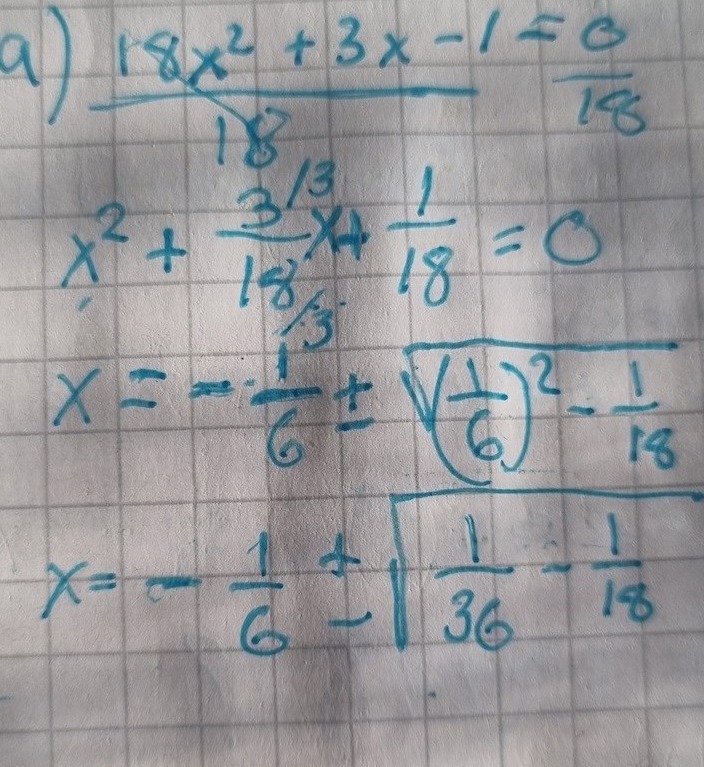 a) 18x² + 3x - 1 = 0
18 18
x² + 3/3 x + 1 = 0
18/3 18
x = - 1/6 ± √(1/6)² - 1/18
x = - 1/6 ± √1/36 - 1/18